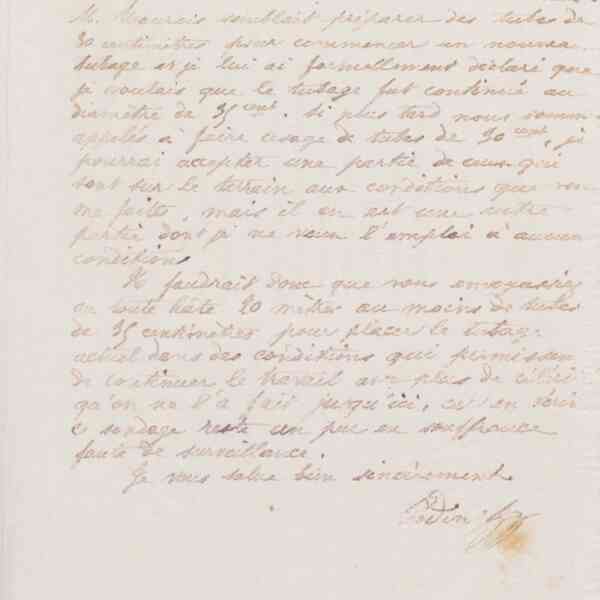 M. Bourois semblait préparer des tubes de
30 centimètres pour commencer un nouveau
tubage et je lui ai formellement déclaré que
je voulais que le tubage fut continué au
diamètre de 35 cent. Si plus tard nous sommes
appelés à faire usage de tubes de 30 cent, je
pourrai accepter une partie de ceux qui
sont sur le terrain aux conditions que vous
me faites, mais il en est une autre
partie dont je ne veux l'emploi à aucune
condition.
Il faudrait donc que vous envoyassiez
en toute hâte 20 mètres au moins de tubes
de 35 centimètres pour placer le tubage
actuel dans des conditions qui permissent
de continuer le travail avec plus de célérité
qu'on ne l'a fait jusqu'ici, car en vérité
ce sondage reste un peu en souffrance
faute de surveillance.
Je vous salue bien sincèrement.
Godin